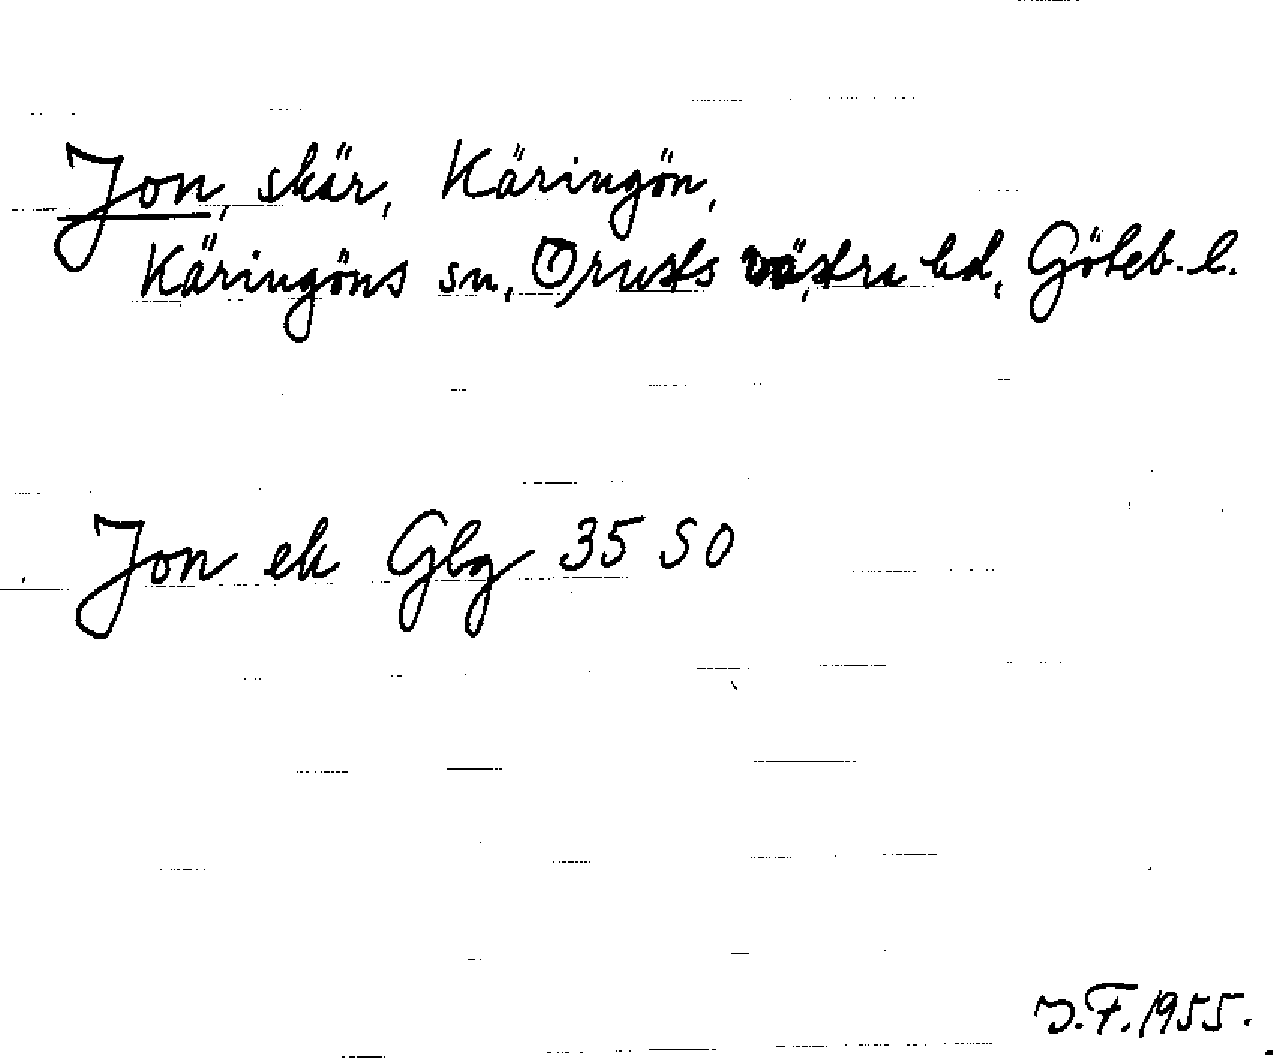 Jon, skär, Käringön,
Käringöns sn, Orusts västra hd, Göteb. l.
Jon ek Gbg 35 SO
J.F. 1955.